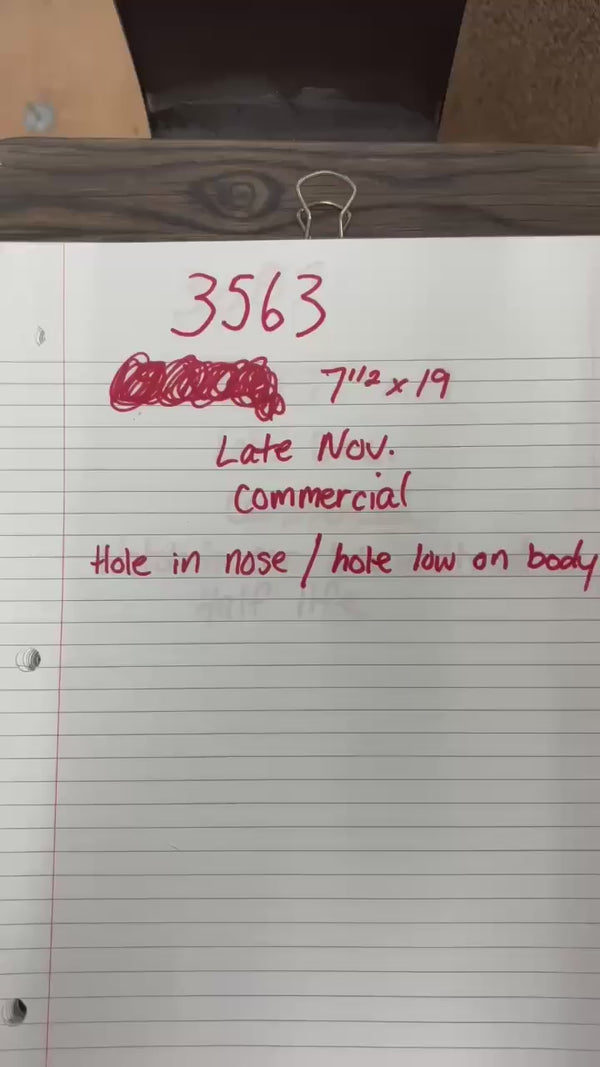 3563
7 1/2 x 19
Late Nov.
Commercial
Hole in nose / hole low on body